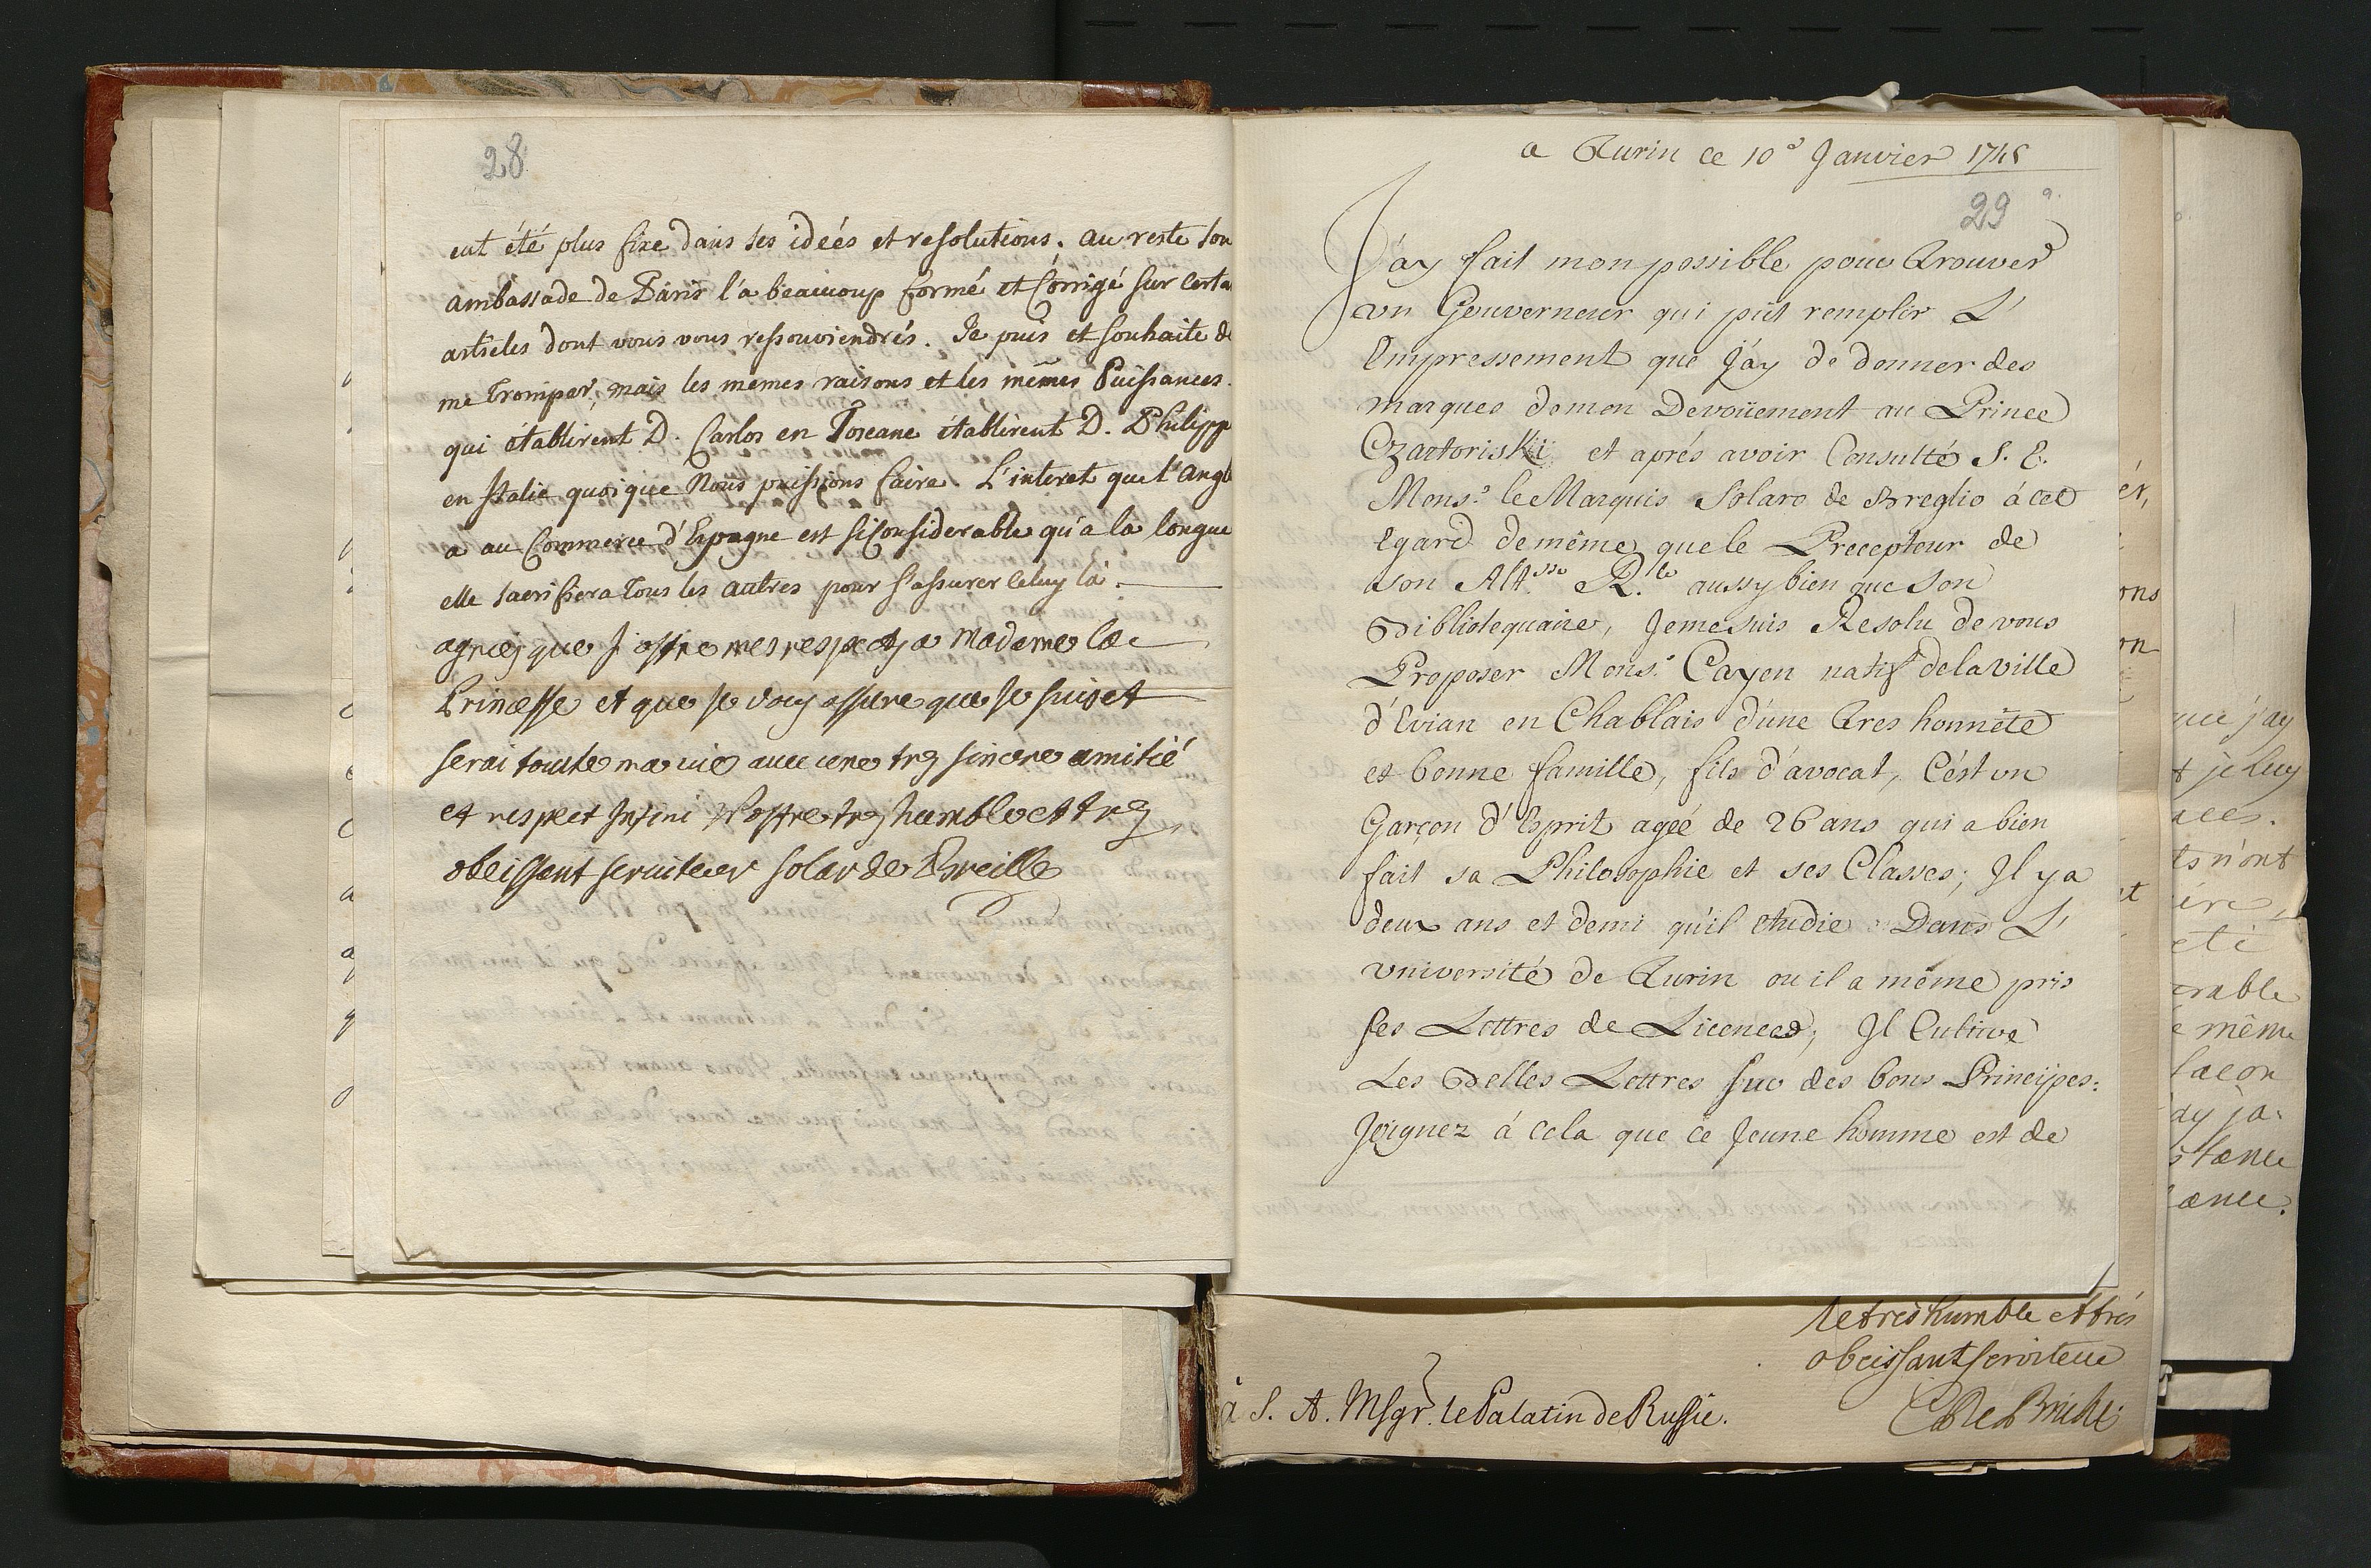 28
eut été plus fixe dans ses idées et resolutions. au reste son
ambassade de Paris l'a beaucoup formé et Corrigé sur certa
articles dont vous vous ressouviendrés. Je puis et souhaite de
me tromper, mais les memes raisons et les mêmes Puissances
qui établirent D. Carlos en Toscane établirent D. Philipp
en Italie quoique Nous puissions faire. L'interet que l'angl
a au Commerce d'Espagne est si Considerable qu'a la longue
elle sacrifiera tous les autres pour s'assurer celuy là.
agreéz que j'offre mes respects a Madame la
Princesse et que je vous assure que je suis et
serai toute ma vie avec une trez sincere amitié
et respect Infini Vostre trez humble et trez
obeissent serviteur Solar de Breille
a Turin ce 10e Janvier 1745
29
J'ay fait mon possible pour trouver
un Gouverneur qui pût remplir L'
Empressement que j'ay de donner des
marques de mon Devoüement au Prince
Czartoriskii et aprés avoir Consulté S. E.
Monsr le Marquis Solaro de Breglio á cet
Egard de même que le Precepteur de
son Altsse Rle aussy bien que son
Bibliotequaire, Je me suis Resolu de vous
Proposer Monsr Cayen natif de la ville
d'Evian en Chablais d'une tres honnête
et bonne famille, fils d'avocat, C'ést un
Garçon d'Esprit ageé de 26 ans qui a bien
fait sa Philosophie et ses Classes; Il y a
deux ans et demi qu'il etudie Dans L'
université de Turin ou il a même pris
ses Lettres de Licences; Il Cultive
Les Belles Lettres sur des bons Principes:
Joignez á cela que ce Jeune homme est de
le tres humble et trés
obeissant serviteur
à S. A. Msgr. le Palatin de Russie.
ér,
ons
on
et
que j'ay
t je luy
ts n'ont
ire,
eté
erable
e même
facon
ay ja-
stance